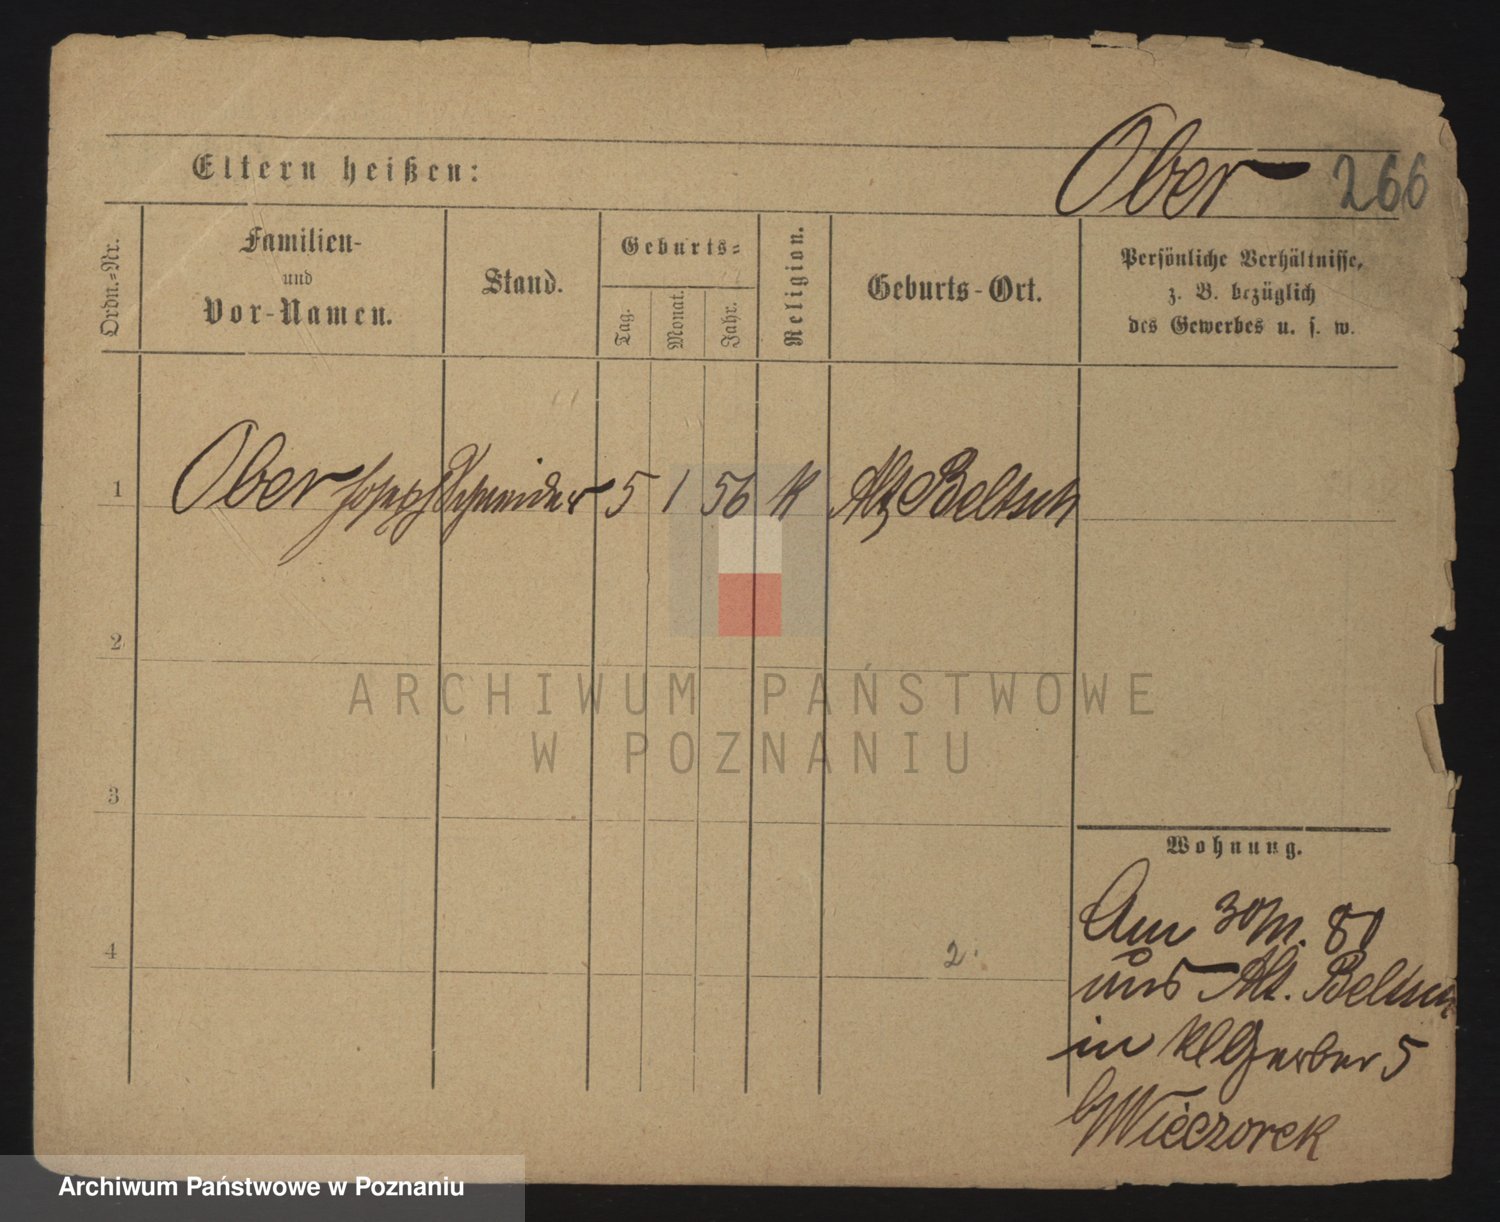 Ober 266
Eltern heißen:
Ordn.-Nr.
Familien-
und
Vor-Namen.
Stand.
Geburts-
Tag.
Monat.
Jahr.
Religion.
Geburts-Ort.
Persönliche Verhältnisse,
z. B. bezüglich
des Gewerbes u. s. w.
1 Ober Joseph Schneider 5 1 56 K Alt Beltsch
2
3
4
2.
Wohnung.
Am 80
aus Alt. Beltsch
in Kl Gerber 5
b/Wieczorek
ARCHIWUM PAŃSTWOWE
W POZNANIU
Archiwum Państwowe w Poznaniu